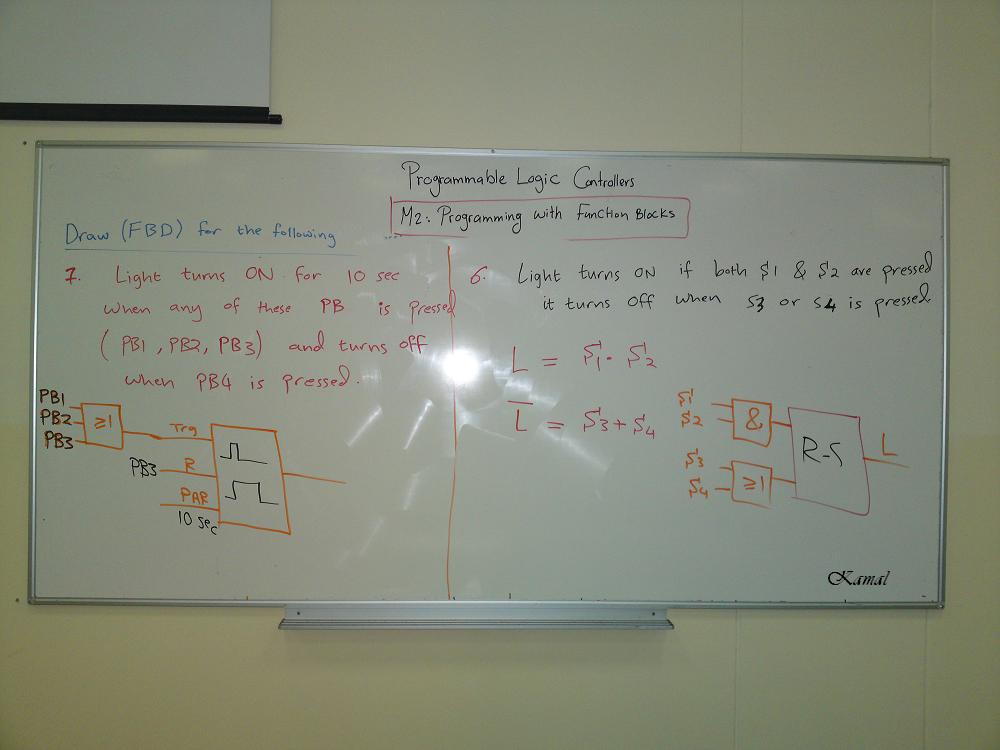 Programmable Logic Controllers
M2: Programming with Function Blocks
Draw (FBD) for the following
7. Light turns ON for 10 sec
when any of these PB is pressed
( PB1 , PB2, PB3) and turns off
when PB4 is pressed.
PB1
PB2
PB3
≥1
Trg
PB3
R
PAR
10 sec
6. Light turns ON if both S1 & S2 are pressed
it turns off when S3 or S4 is pressed.
L = S1 · S2
L̅ = S3 + S4
S1
S2
&
S3
S4
≥1
R-S
L
Kamal